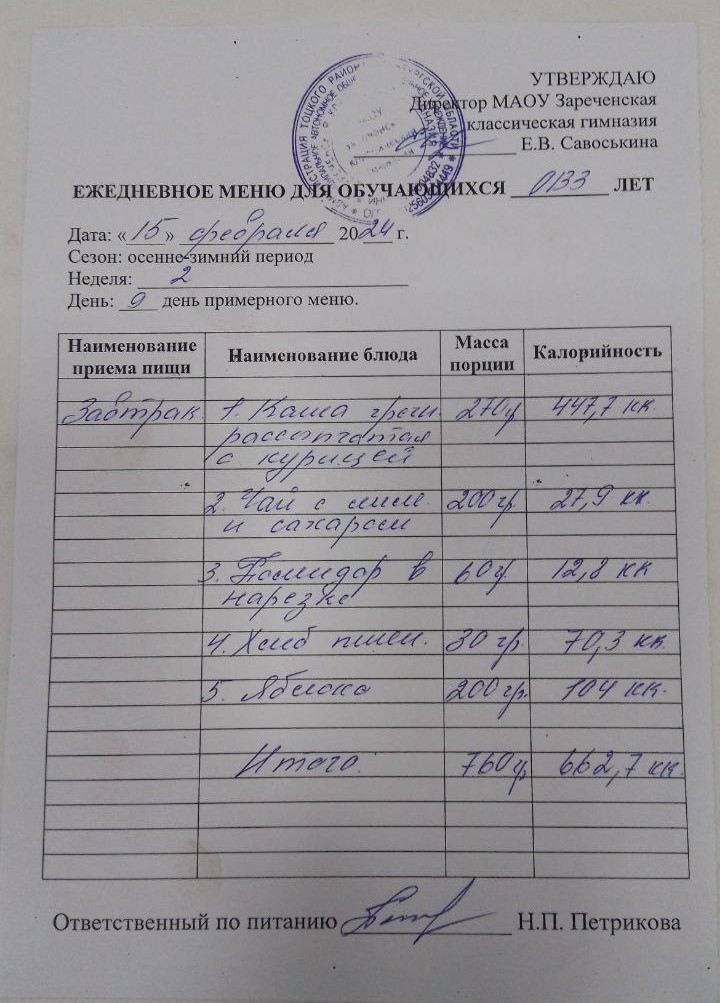 УТВЕРЖДАЮ
Директор МАОУ Зареченская
классическая гимназия
Е.В. Савоськина
ЕЖЕДНЕВНОЕ МЕНЮ ДЛЯ ОБУЧАЮЩИХСЯ ОВЗ ЛЕТ
Дата: « 15 » февраля 2024 г.
Сезон: осенне-зимний период
Неделя: 2
День: 9 день примерного меню.
Наименование приема пищи Наименование блюда Масса порции Калорийность
Завтрак 1. Каша гречн. 270 гр 447,7 кк.
рассыпчатая
с курицей
2. Чай с лим. 200 гр. 27,9 кк.
и сахаром
3. Помидор в 60 гр. 12,8 кк
нарезке
4. Хлеб пшен. 30 гр. 70,3 кк
5. Яблоко 200 гр. 104 кк.
Итого. 760 гр 662,7 кк.
Ответственный по питанию Н.П. Петрикова